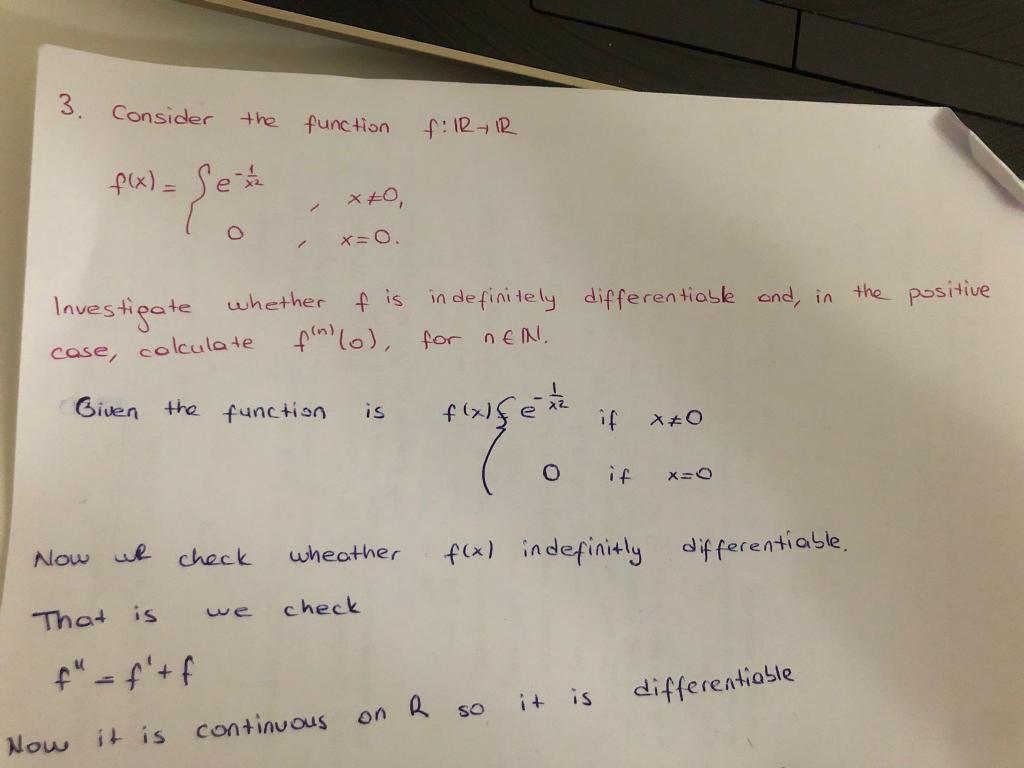 3. Consider the function f: ℝ→ℝ
f(x) = { e^{-1/x²} , x≠0,
0 , x=0.
Investigate whether f is indefinitely differentiable and, in the positive
case, calculate f^{(n)}(0), for n∈ℕ.
Given the function is f(x) { e^{-1/x²} if x≠0
0 if x=0
Now we check wheather f(x) indefinitly differentiable.
That is we check
f'' = f' + f
Now it is continuous on R so it is differentiable